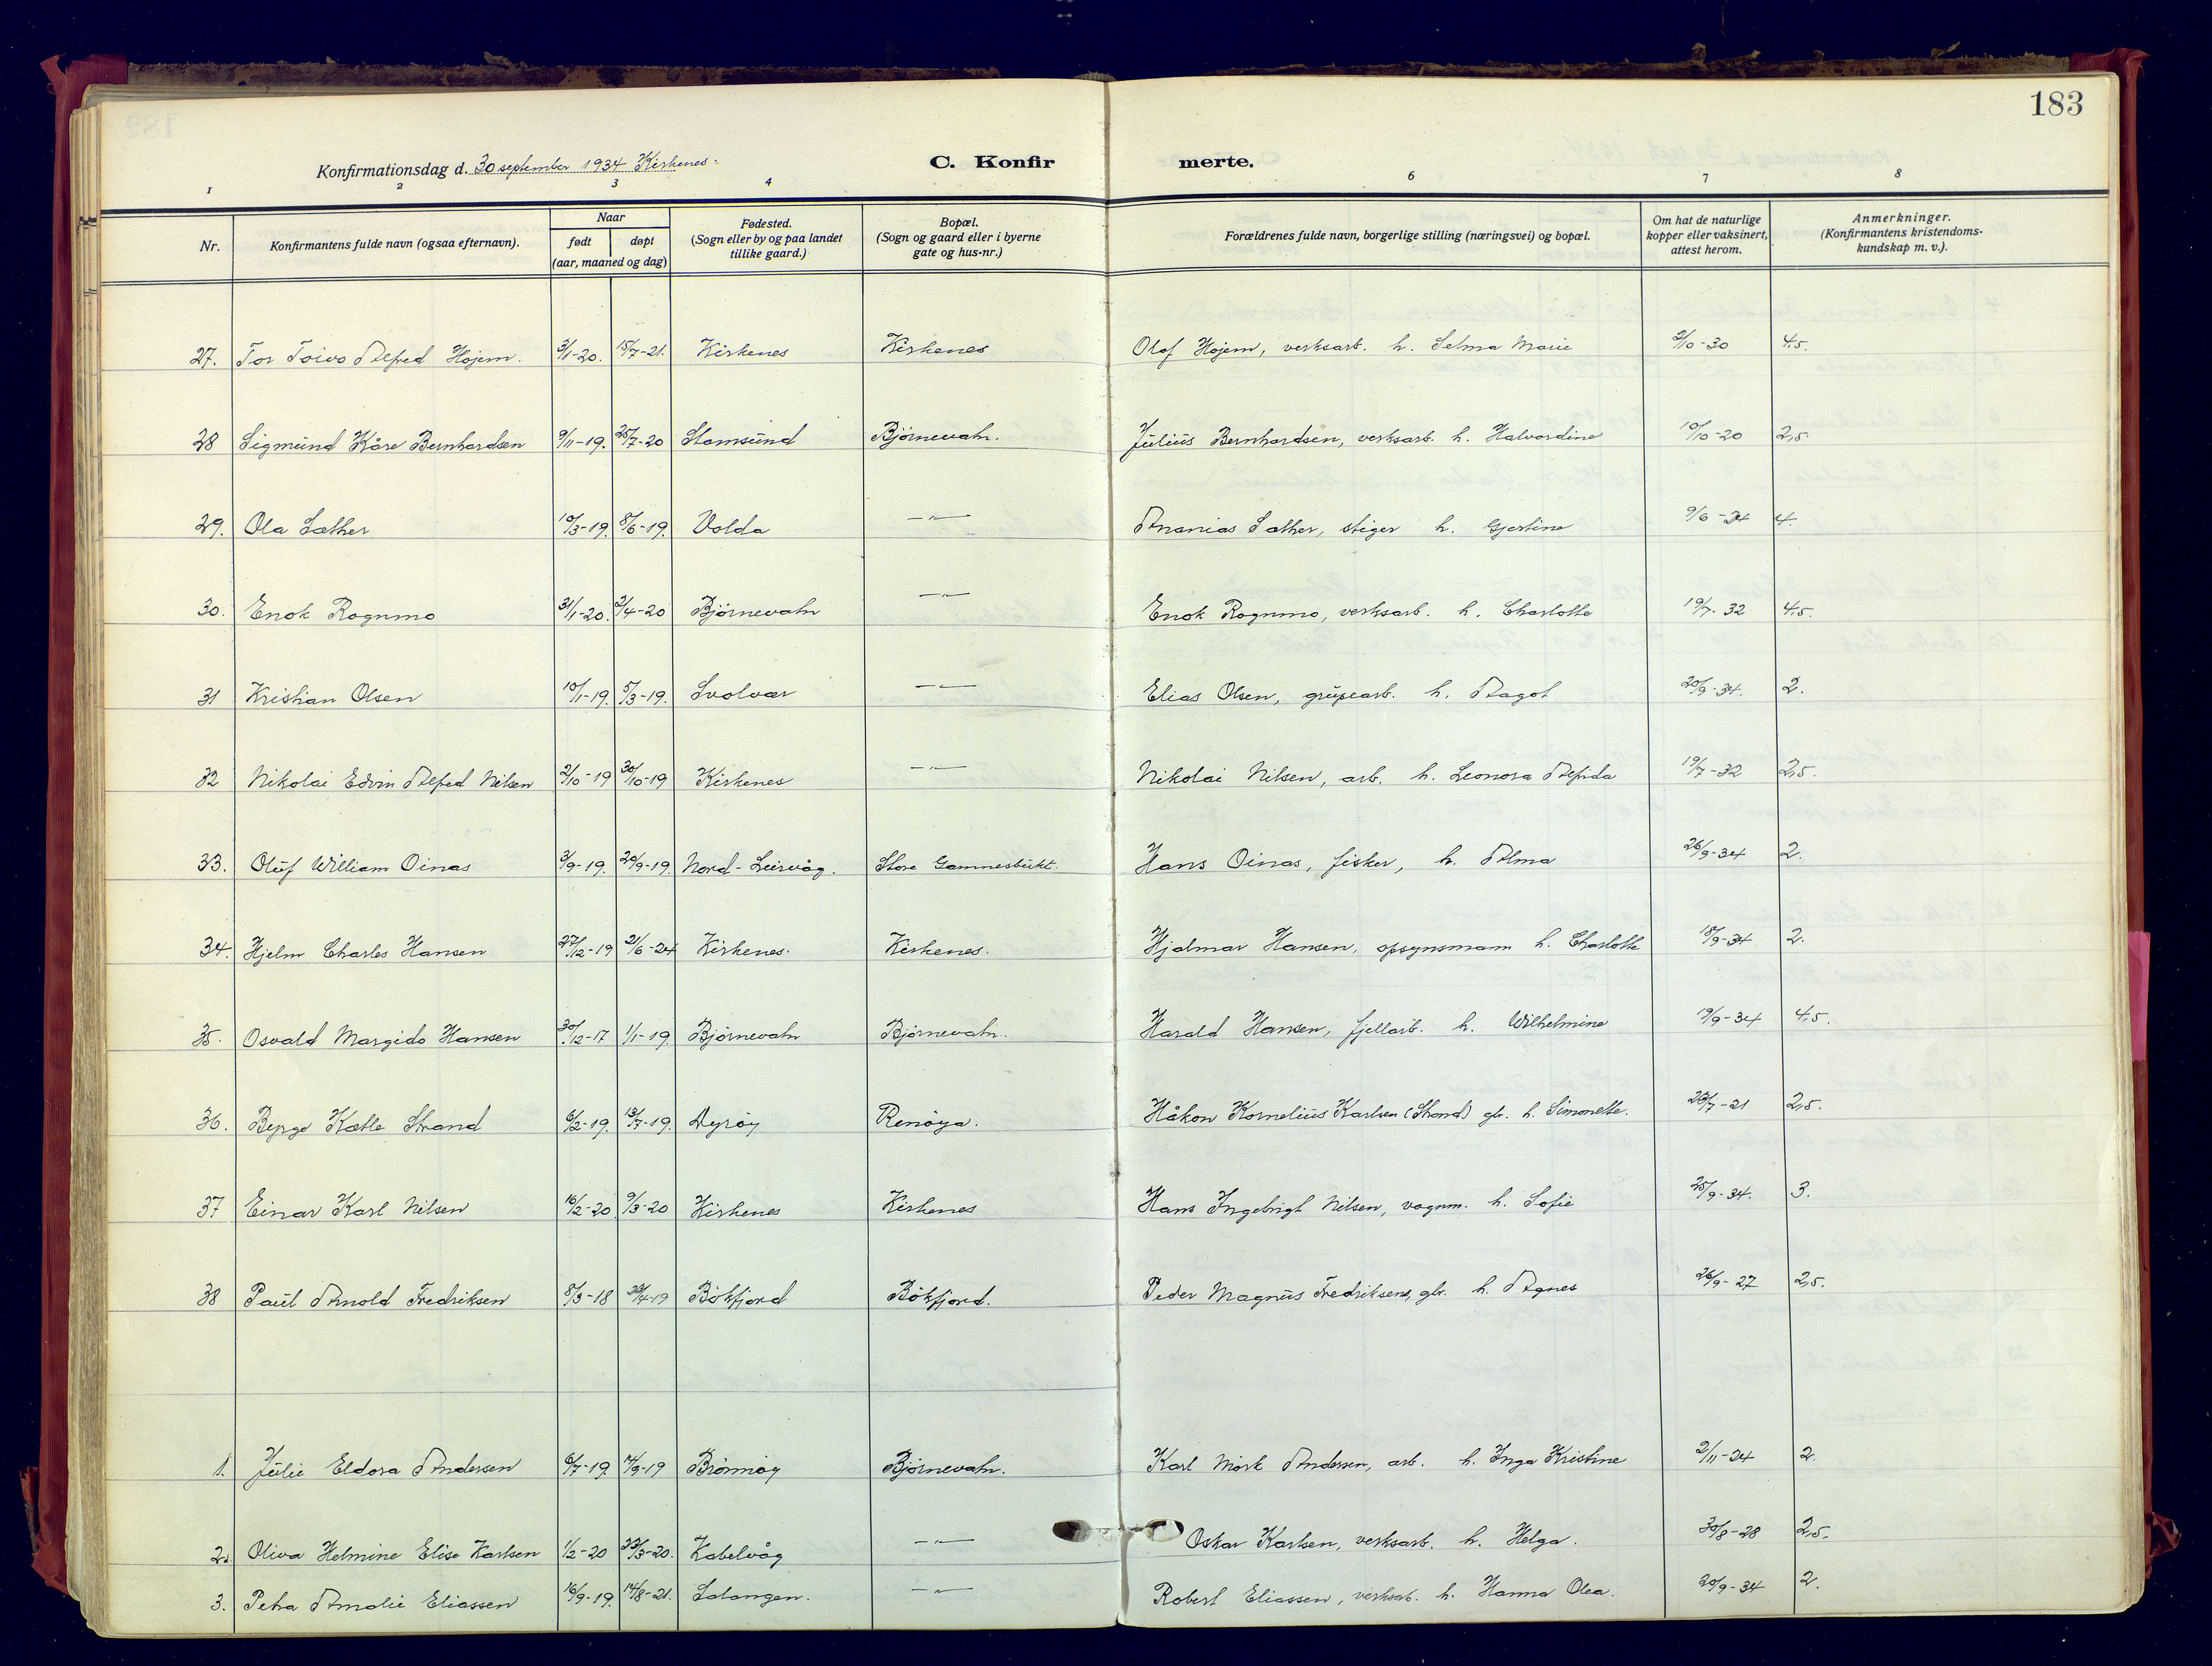 183
Konfirmationsdag d. 30 september 1934 Kirkenes.
C. Konfirmerte.
1 2 3 4 6 7 8
Nr. Konfirmantens fulde navn (ogsaa efternavn). Naar født døpt (aar, maaned og dag) Fødested. (Sogn eller by og paa landet tillike gaard.) Bopæl. (Sogn og gaard eller i byerne gate og hus-nr.) Forældrenes fulde navn, borgerlige stilling (næringsvei) og bopæl. Om hat de naturlige kopper eller vaksinert, attest herom. Anmerkninger. (Konfirmantens kristendomskundskap m. v.).
27. Tor Toivo Alfred Højem. 3/1-20. 15/7-21. Kirkenes Kirkenes Olof Højem, verksarb. h. Selma Marie 2/10-30 4,5.
28 Sigmund Kåre Bernhardsen 9/11-19. 25/7-20 Stamsund Bjørnevatn. Julius Bernhardsen, verksarb. h. Halvardine 10/10-20 2,5.
29. Ola Sæther 10/3-19. 8/6-19. Volda -"- Ananias Sæther, stiger h. Gjertine 9/6-24 4.
30. Enok Rognmo 31/1-20. 2/4-20 Bjørnevatn -"- Enok Rognmo, verksarb. h. Charlotte 19/7-32 4,5.
31 Kristian Olsen 10/1-19. 5/3-19. Svolvær -"- Elias Olsen, grupearb. h. Aagot 20/9-34. 2.
32 Nikolai Edvin Alfred Nilsen 2/10-19 30/10-19 Kirkenes -"- Nikolai Nilsen, arb. h. Leonora Alfida 19/7-32 2,5.
33. Oluf William Oinas 3/9-19. 20/9-19. Nord-Leirvåg. Store Gamnesbukt. Hans Oinas, fisker, h. Alma 26/9-34 2.
34. Hjelm Charles Hansen 27/12-19 2/6-24 Kirkenes. Kirkenes. Hjalmar Hansen, opsynsmann h. Charlotte 18/9-34 2.
35. Osvald Margido Hansen 30/12-17 1/1-19. Bjørnevatn Bjørnevatn. Harald Hansen, fjellarb. h. Wilhelmine 19/9-34 4,5.
36. Byrge Kætle Strand 6/2-19. 13/7-19. Dyrøy Renøya. Håkon Kornelius Karlsen (Strand) gbr. h. Simonette. 23/7-21 2,5.
37 Einar Karl Nilsen 16/2-20. 9/3-20 Kirkenes Kirkenes Hans Ingebrigt Nilsen, vognm. h. Sofie 25/9-34. 3.
38 Paul Arnold Fredriksen 8/3-18 /4-19 Bökfjord Bökfjord. Peder Magnus Fredriksen, gbr. h. Agnes 26/9-27 2,5.
1. Julie Eldora Andersen 6/7-19. /9-19 Brönnöy Bjørnevatn. Karl Mörk Andersen, arb. h. Inga Kristine 2/11-24 2.
2. Oliva Helmine Elise Karlsen 1/2-20 /3-20. Kabelvåg -"- Oskar Karlsen, verksarb. h. Helga. 30/8-28 2,5.
3. Petra Amalie Eliassen 16/9-19. 14/8-21. Salangen. -"- Robert Eliassen, verksarb. h. Hanna Olea. 20/9-34 2.